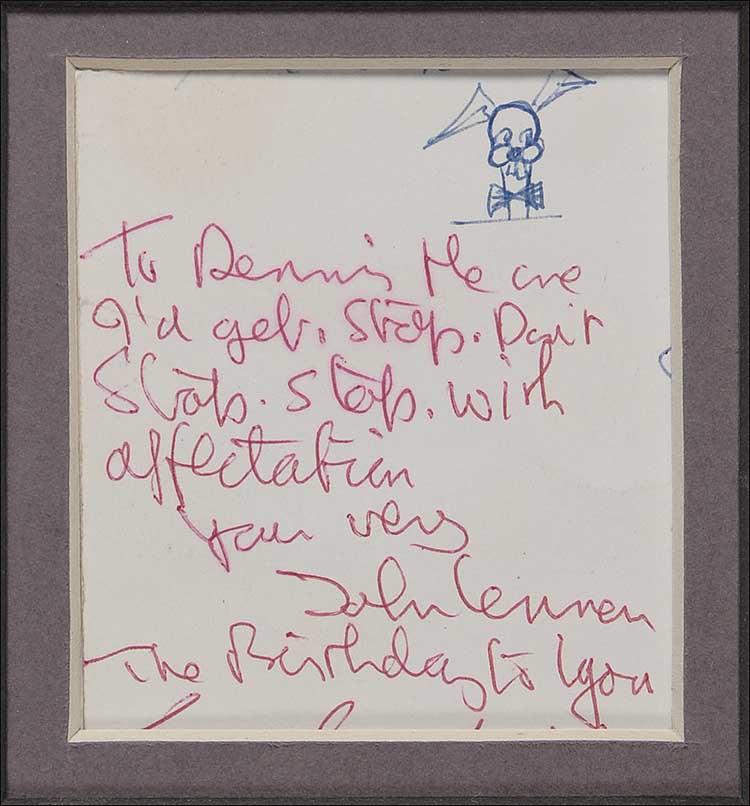 To Dennis He one
I'd geb. Stop. Don't
Stop. Stop. with
affectation
your very
John Lennon
The Birthday to you